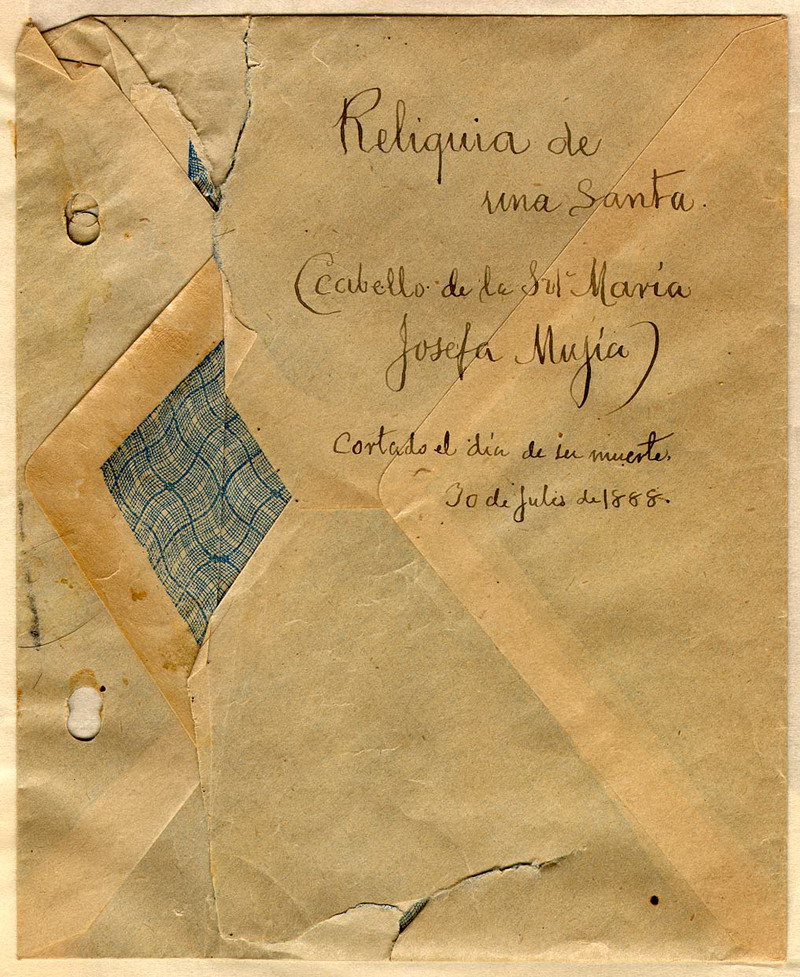 Reliquia de
una Santa.
(cabello de la Srta María
Josefa Mujía)
Cortado el día de su muerte,
30 de Julio de 1888.